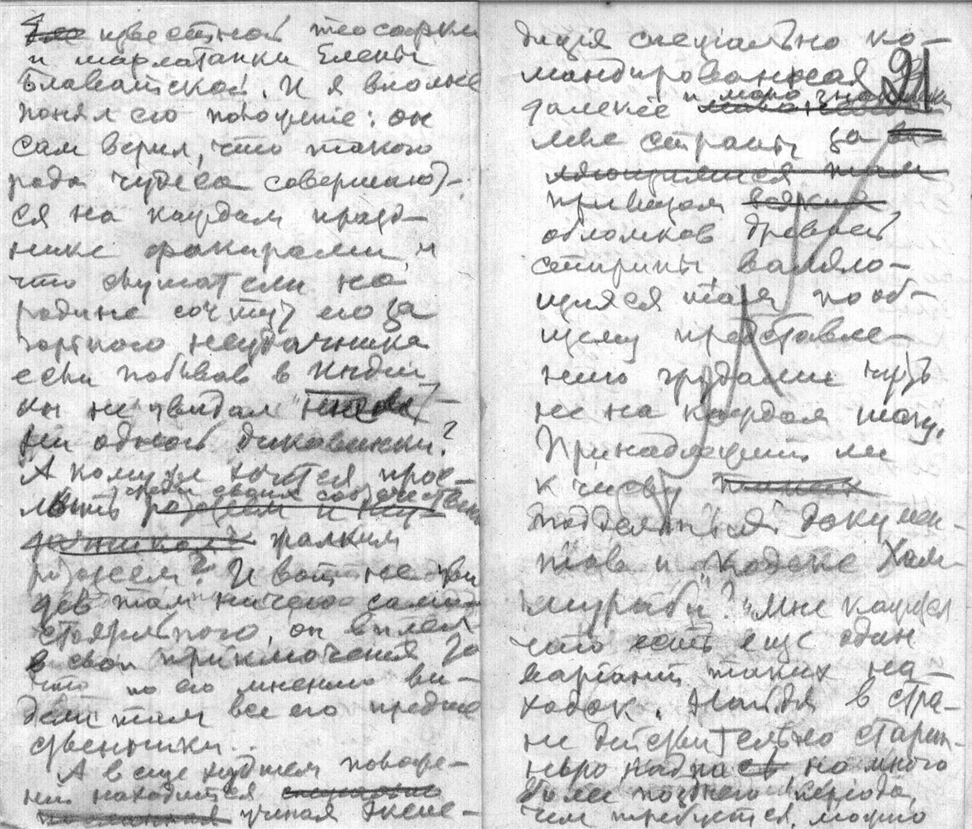 известной теософки
и шарлатанки Елены
Блаватской. И я вполне
понял его поведение: он
сам верил, что такого
рода чудеса совершают-
ся на каждом празд-
нике факирами, и
что слушатели на
родине сочтут его за
неудачника
если побывав в Индии
он не увидал
ни одной диковинки?
А кому же хочется прос-
лыть среди своих
жалким
? И вот не уви
дев там ничего самос
тоятельного, он вплел
в свои приключения то
что по его мнению ви-
дели там все его предше
ственники...
А в еще худшем положе-
нии находится
ученая экспе-
диция специально ко-
мандированная в
21
далекие и малознакомы
мые страны за

привозом
обломков древней
старины, валяю-
щихся там по об-
щему представле-
нию грудами чуть
не на каждом шагу.
Принадлежит ли
к числу
поддельных докумен-
тов и "Кодекс Хам-
мураби"? Мне кажется
что есть еще один
вариант таких на-
ходок. Найдя в стра-
не действительно старин-
ную надпись но много
более позднего периода,
чем требуется, можно